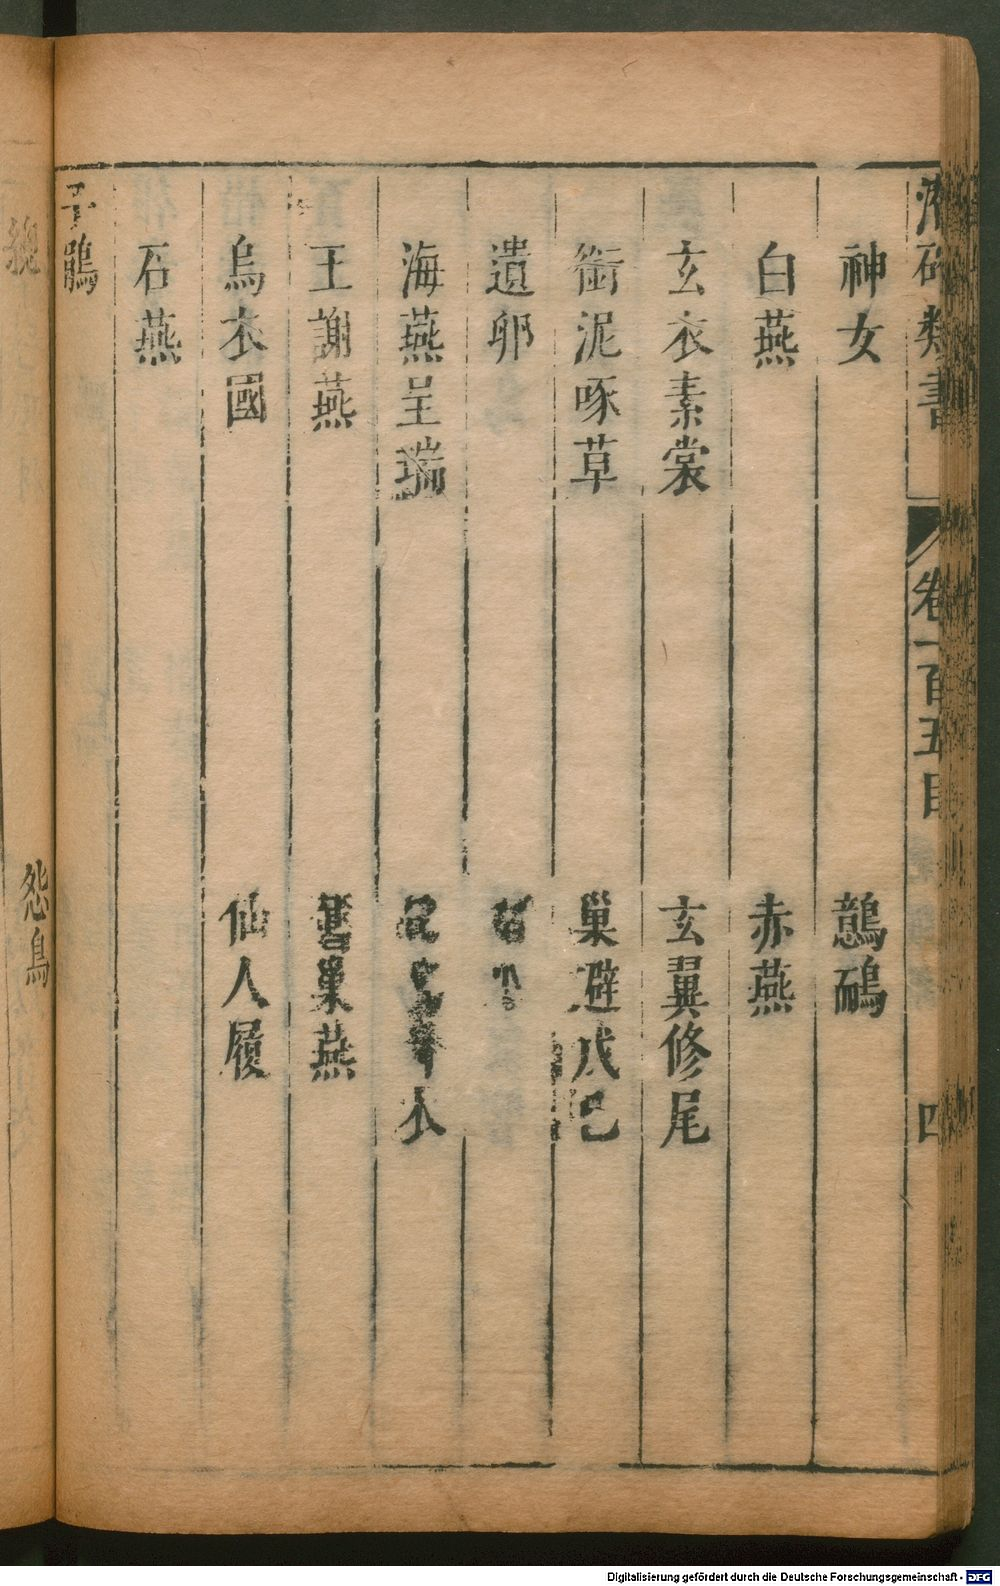 類書
卷一百五目
四
神女
鷾䴏
白燕
赤燕
玄衣素裳
玄翼修尾
銜泥啄草
巢避戊己
遺卵
海燕呈瑞
衣
王謝燕
巢燕
烏衣國
仙人履
石燕
子鵑
怨鳥
Digitalisierung gefördert durch die Deutsche Forschungsgemeinschaft - DFG